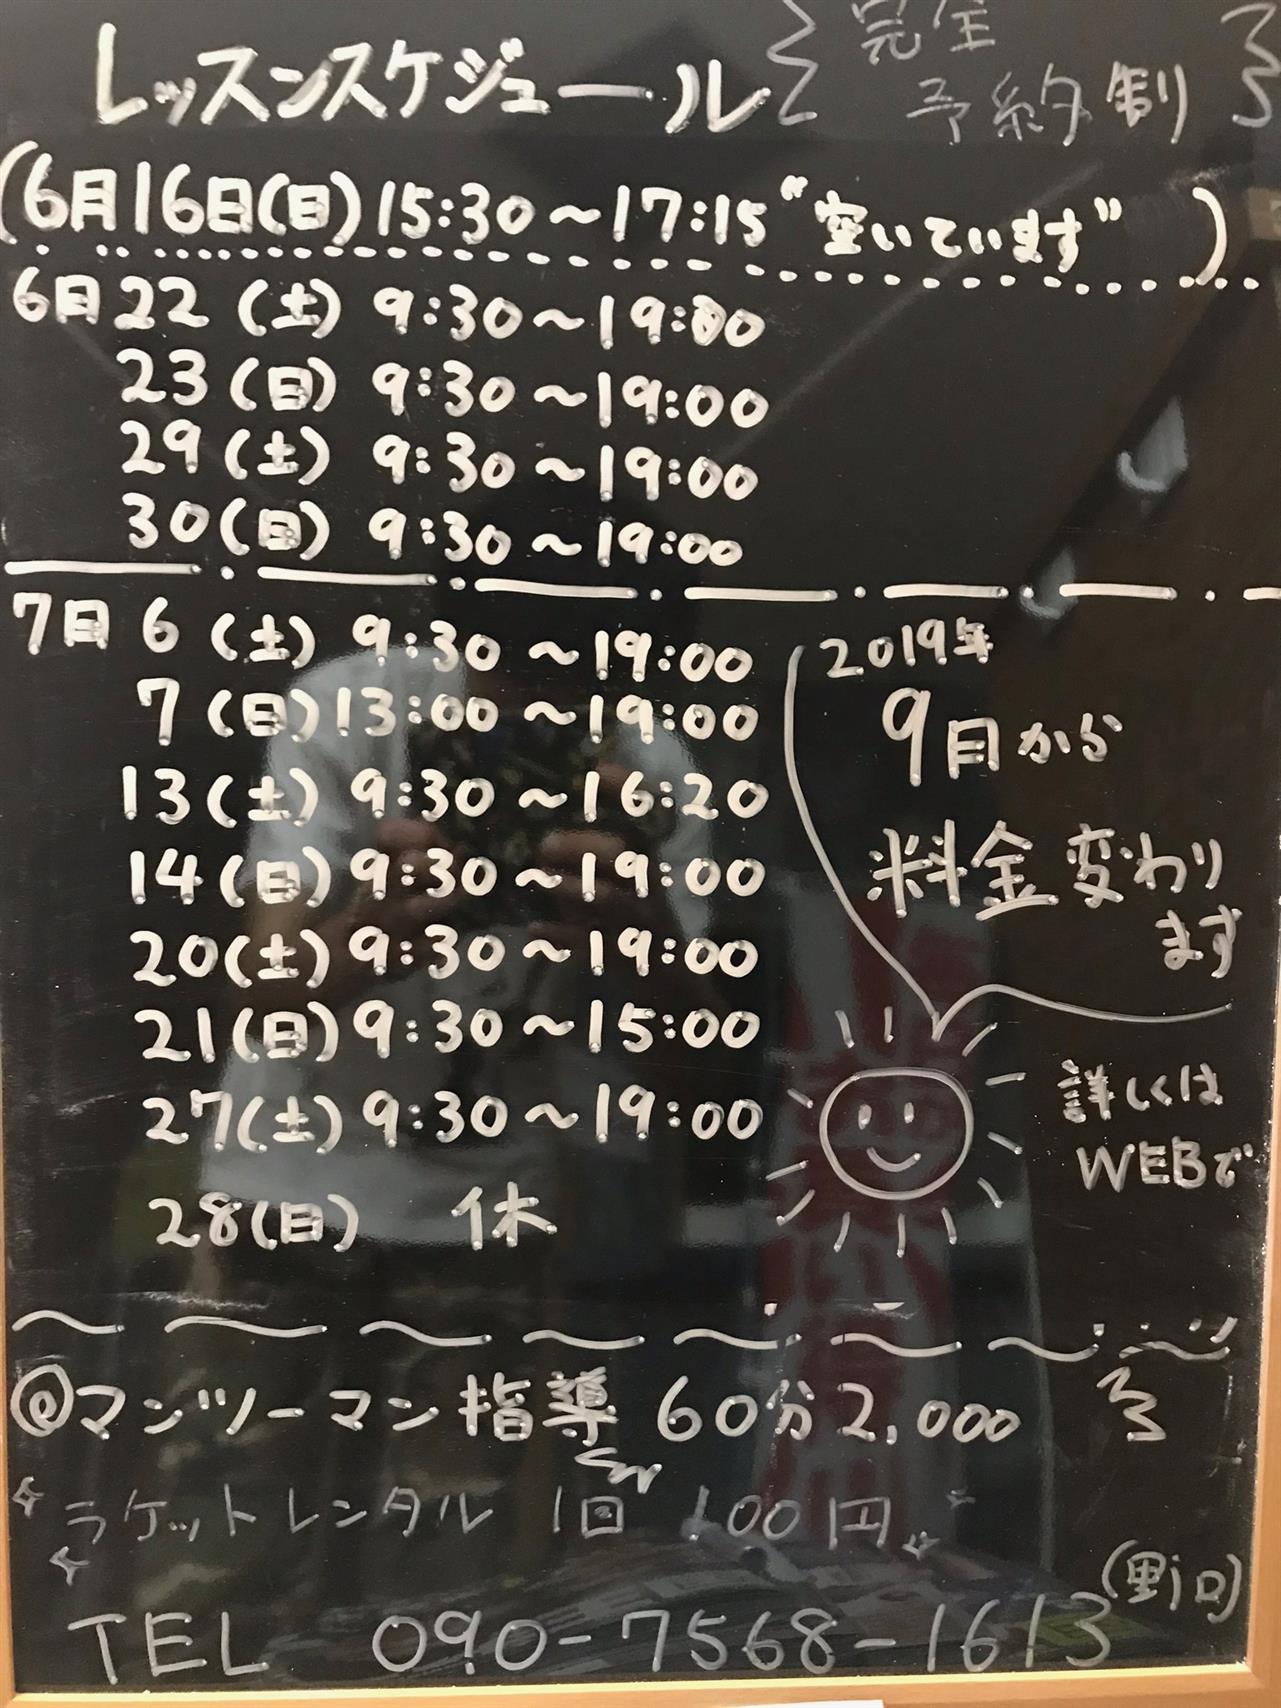 レッスンスケジュール
完全
予約制
(6月16日(日)15:30〜17:15 "空いています" )
6月22(土) 9:30〜19:00
23(日) 9:30〜19:00
29(土) 9:30〜19:00
30(日) 9:30〜19:00
7月 6(土) 9:30〜19:00
7(日) 13:00〜19:00
13(土) 9:30〜16:20
14(日) 9:30〜19:00
20(土) 9:30〜19:00
21(日) 9:30〜15:00
27(土) 9:30〜19:00
28(日) 休
2019年
9月から
料金変わり
ます
詳しくは
WEBで
@マンツーマン指導 60分2,000
ラケットレンタル 1回 100円
(野口)
TEL 090-7568-1613